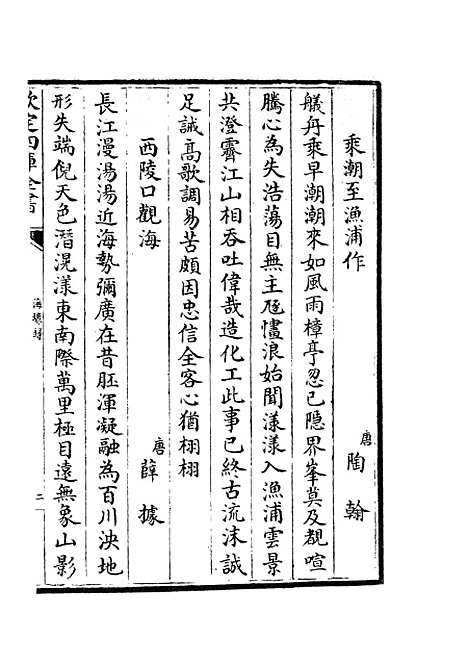 乘潮至漁浦作
唐 陶翰
艤舟乘早潮潮來如風雨樟亭忽已隱界峯莫及覩喧
騰心為失浩蕩目無主豗㦎浪始聞漾漾入漁浦雲景
共澄霽江山相吞吐偉哉造化工此事已終古流沫誠
足誡髙歌調易苦頗因忠信全客心猶栩栩
西陵口觀海
唐 薛據
長江漫湯湯近海勢彌廣在昔胚渾凝融為百川泱地
形失端倪天色潛滉漾東南際萬里極目遠無象山影
欽定四庫全書
海塘録
二